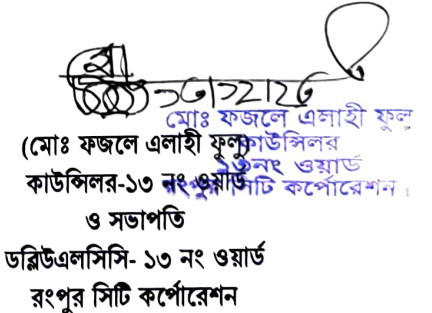 মোঃ ফজলে এলাহী ফুলু
কাউন্সিলর
১৩নং ওয়ার্ড
রংপুর সিটি কর্পোরেশন।
(মোঃ ফজলে এলাহী ফুলু)
কাউন্সিলর-১৩ নং ওয়ার্ড
ও সভাপতি
ডব্লিউএলসিসি- ১৩ নং ওয়ার্ড
রংপুর সিটি কর্পোরেশন